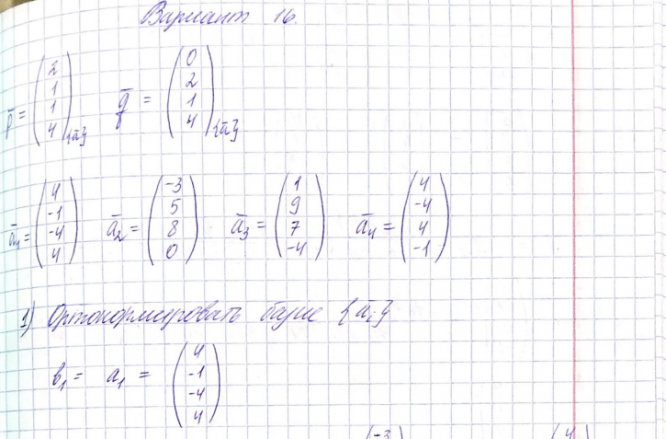 Вариант 16.
p̄ = (2 1 1 4){ā} q̄ = (0 2 1 4){ā}
ā₁ = (4 -1 -4 4) ā₂ = (-3 5 8 0) ā₃ = (1 9 7 -4) ā₄ = (4 -4 4 -1)
1) Ортонормировать базис {āᵢ}
в₁ = а₁ = (4 -1 -4 4)
(-3) (4)